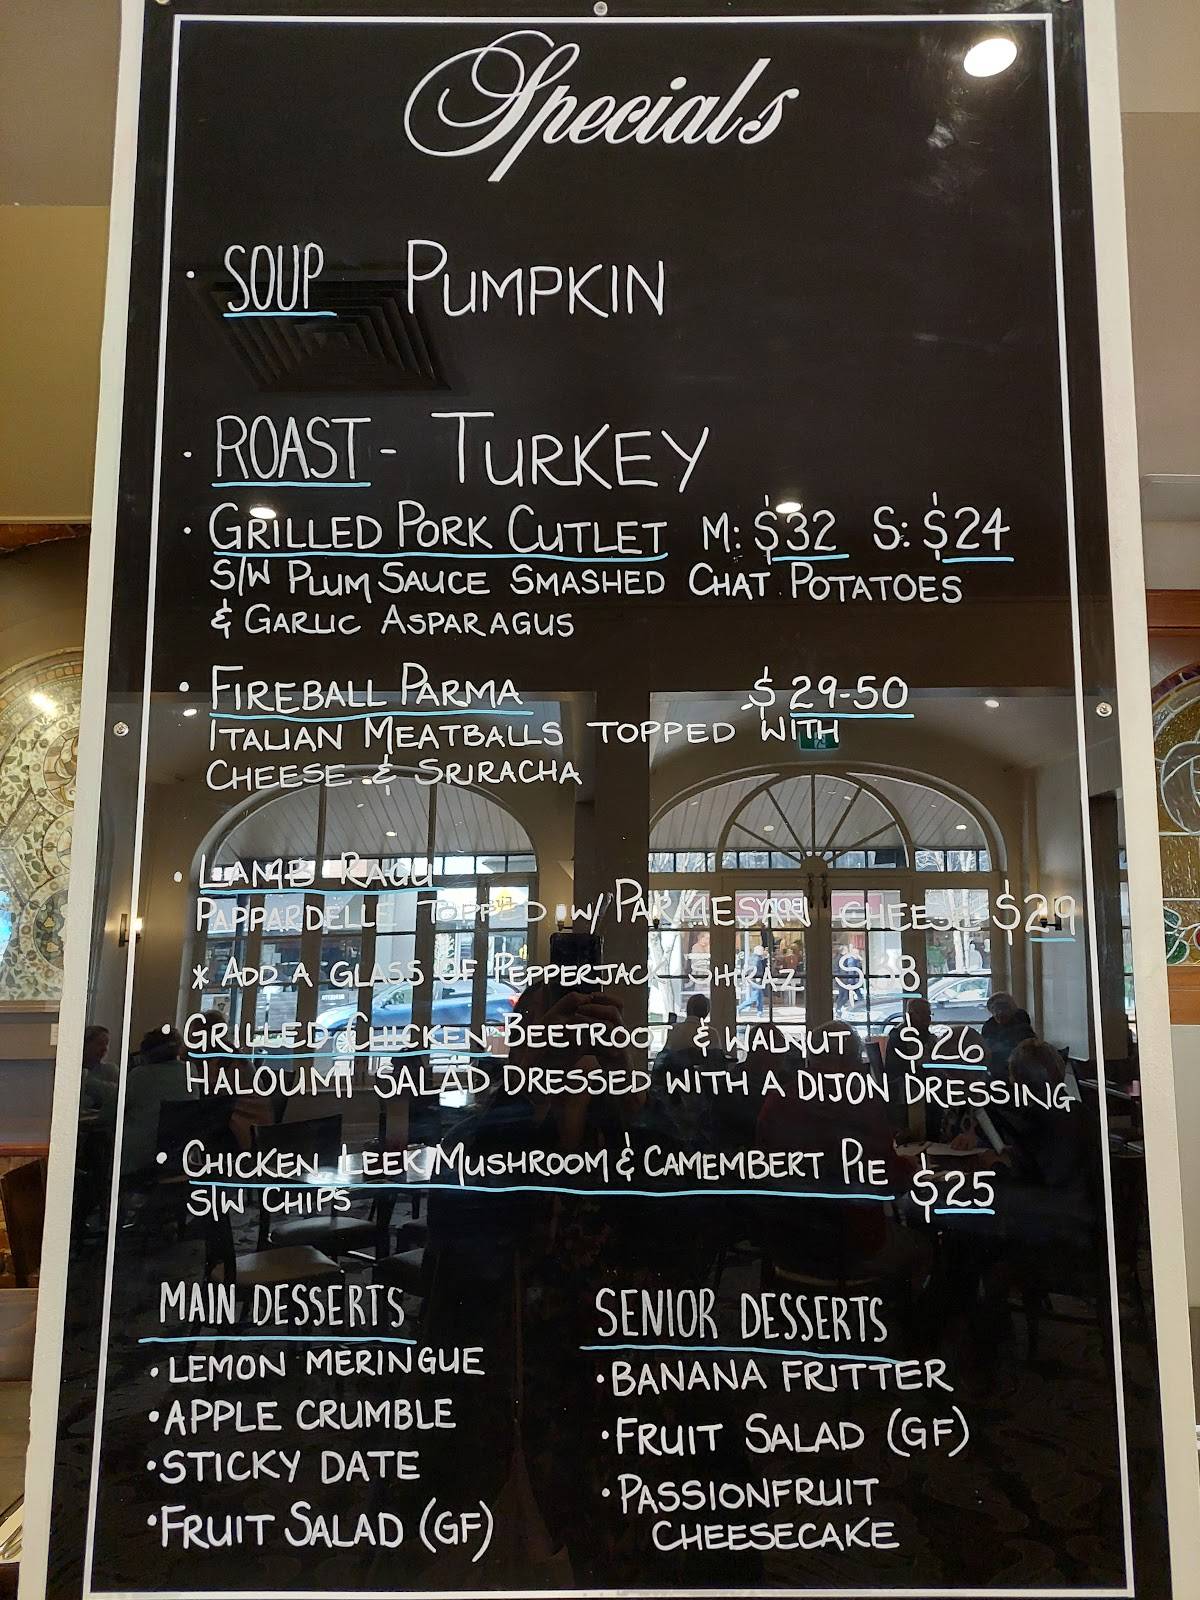 Specials
· SOUP PUMPKIN
· ROAST - TURKEY
· GRILLED PORK CUTLET M: $32 S: $24
S/W PLUM SAUCE SMASHED CHAT POTATOES
& GARLIC ASPARAGUS
· FIREBALL PARMA $29-50
ITALIAN MEATBALLS TOPPED WITH
CHEESE & SRIRACHA
· LAMB RAGU
PAPPARDELLE TOPPED W/ PARMESAN CHEESE $29
* ADD A GLASS OF PEPPERJACK SHIRAZ
· GRILLED CHICKEN BEETROOT & WALNUT $26
HALOUMI SALAD DRESSED WITH A DIJON DRESSING
· CHICKEN LEEK MUSHROOM & CAMEMBERT PIE $25
S/W CHIPS
MAIN DESSERTS
· LEMON MERINGUE
· APPLE CRUMBLE
· STICKY DATE
· FRUIT SALAD (GF)
SENIOR DESSERTS
· BANANA FRITTER
· FRUIT SALAD (GF)
· PASSIONFRUIT
CHEESECAKE